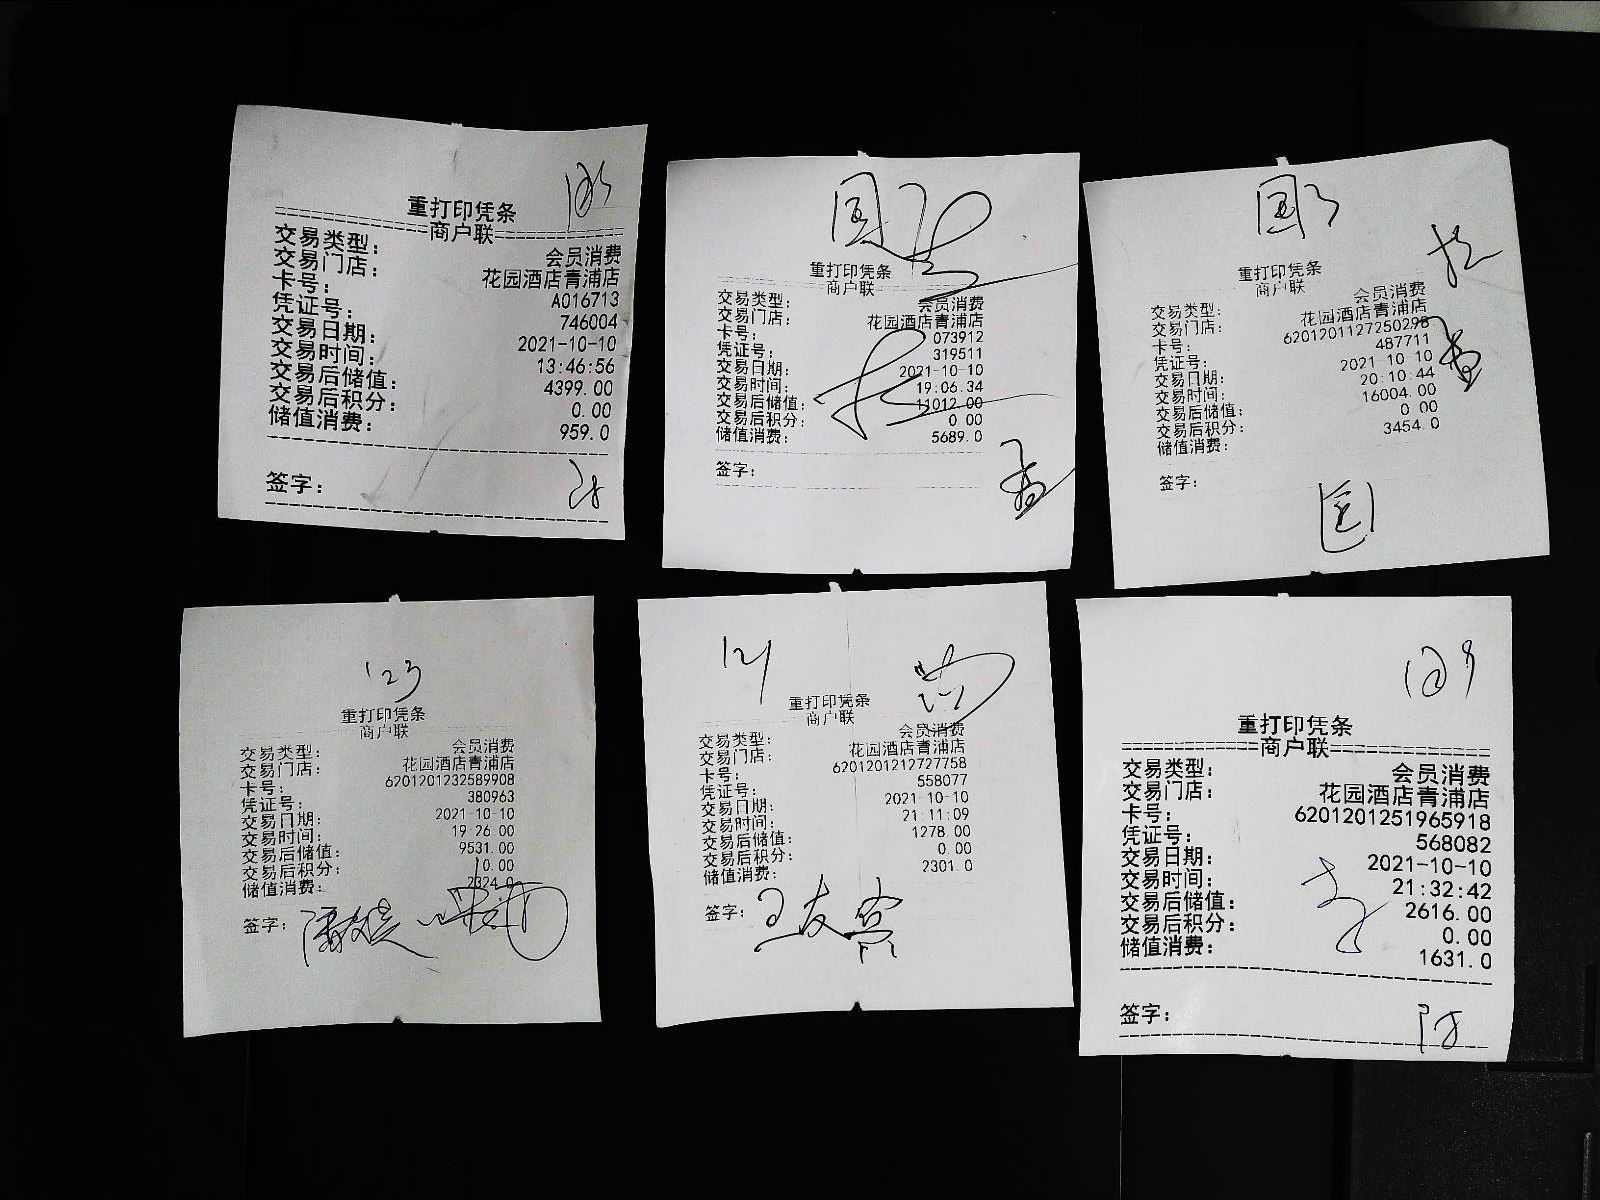 重打印凭条
商户联
交易类型: 会员消费
交易门店: 花园酒店青浦店
卡号: A016713
凭证号: 746004
交易日期: 2021-10-10
交易时间: 13:46:56
交易后储值: 4399.00
交易后积分: 0.00
储值消费: 959.0
签字:
重打印凭条
商户联
交易类型: 会员消费
交易门店: 花园酒店青浦店
卡号: 073912
凭证号: 319511
交易日期: 2021-10-10
交易时间: 19:06:34
交易后储值: 11012.00
交易后积分: 0.00
储值消费: 5689.0
签字:
重打印凭条
商户联
交易类型: 会员消费
交易门店: 花园酒店青浦店
卡号: 6201201127250298
凭证号: 487711
交易日期: 2021-10-10
交易时间: 20:10:44
交易后储值: 16004.00
交易后积分: 0.00
储值消费: 3454.0
签字:
123
重打印凭条
商户联
交易类型: 会员消费
交易门店: 花园酒店青浦店
卡号: 6201201232589908
凭证号: 380963
交易日期: 2021-10-10
交易时间: 19:26:00
交易后储值: 9531.00
交易后积分: 0.00
储值消费: 2324.0
签字:
121
重打印凭条
商户联
交易类型: 会员消费
交易门店: 花园酒店青浦店
卡号: 6201201212727758
凭证号: 558077
交易日期: 2021-10-10
交易时间: 21:11:09
交易后储值: 1278.00
交易后积分: 0.00
储值消费: 2301.0
签字:
重打印凭条
商户联
交易类型: 会员消费
交易门店: 花园酒店青浦店
卡号: 6201201251965918
凭证号: 568082
交易日期: 2021-10-10
交易时间: 21:32:42
交易后储值: 2616.00
交易后积分: 0.00
储值消费: 1631.0
签字: